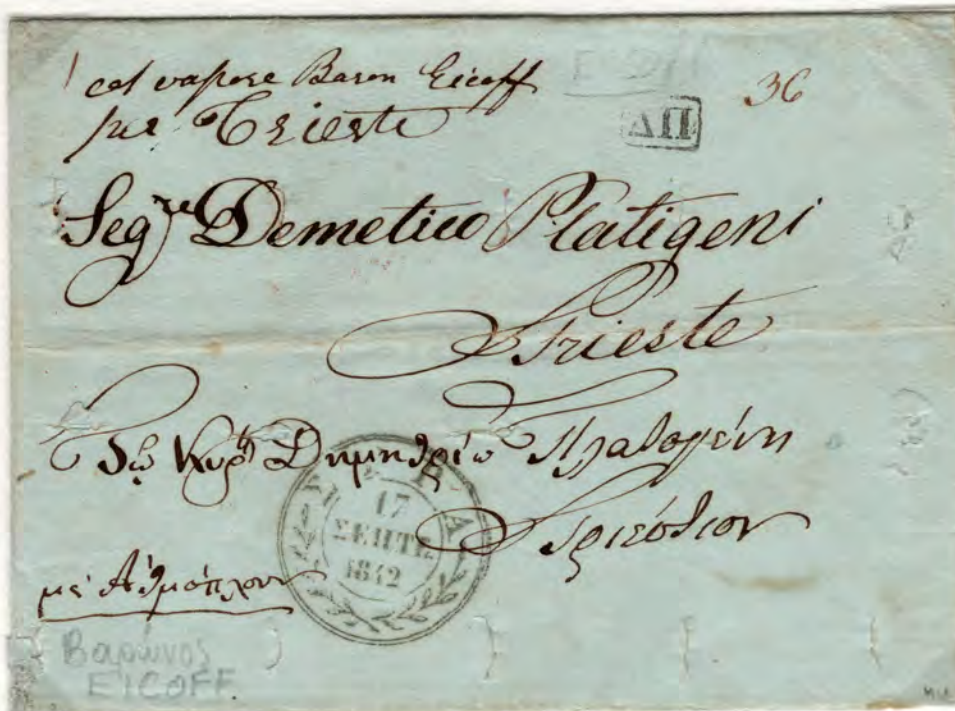 col vapore Baron Eicoff
per Trieste
36
ΔΠ
Segre Demetrio Platigeni
Trieste
Τῷ Κυρῳ Δημητρίῳ Πλατυγένη
Τριέστιον
17
ΣΕΠΤΕ
1842
με Ατμόπλουν
Βαρώνος
EICOFF